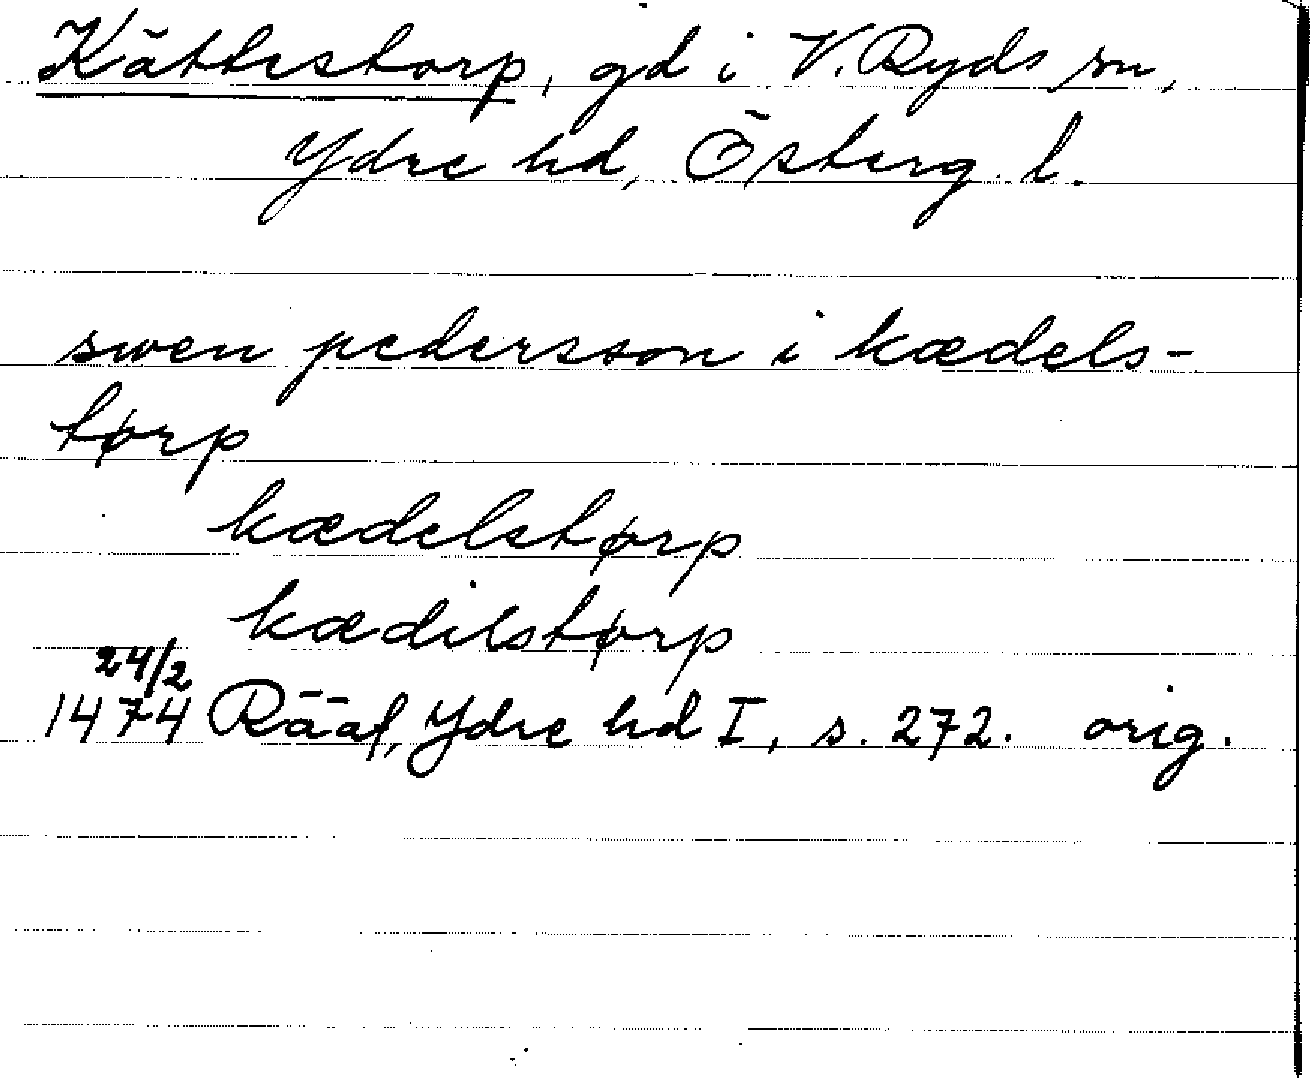 Kättestorp, gd i V. Ryds sn,
Ydre hd, Österg. l.
swen pedersson i kædels-
tørp
kædelstørp
kædilstørp
24/2
1474 Rääf, Ydre hd I, s. 272. orig.